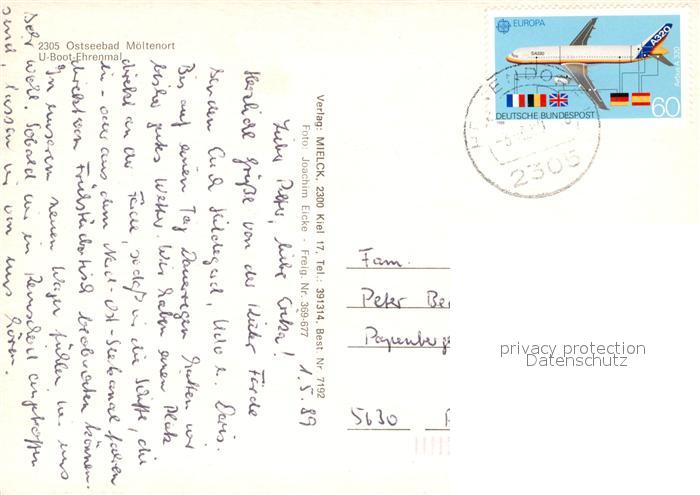 2305 Ostseebad Möltenort
U-Boot-Ehrenmal
Verlag: MIELCK, 2300 Kiel 17, Tel.: 391314, Best Nr 7192
Foto: Joachim Eicke - Freig. Nr. 369-677
1.5.89
Liebe Peter, liebe Erika!
Herzliche Grüße von der Kieler Förde
senden Euch Hildegard, Udo u. Doris.
Bis auf einen Tag Dauerregen hatten wir
bisher gutes Wetter. Wir haben einen Platz
direkt an der Förde, sodaß wir die Schiffe, die
in- oder aus dem Nord-Ost-Seekanal fahren
direkt vom Frühstückstisch beobachten können.
In unserem neuen Wagen fühlen wir uns
sehr wohl. Sobald wir in Remscheid eingetroffen
sind, lassen wir von uns hören.
EUROPA
A320
Airbus A 320
DEUTSCHE BUNDESPOST
1988
60
2305
Fam.
Peter Be
Papenberge
5630
privacy protection
Datenschutz